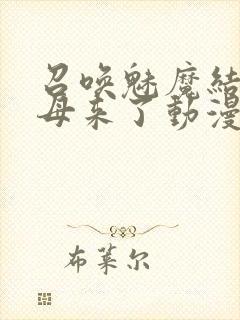 召唤魅魔结
母来了動漫
布莱尔